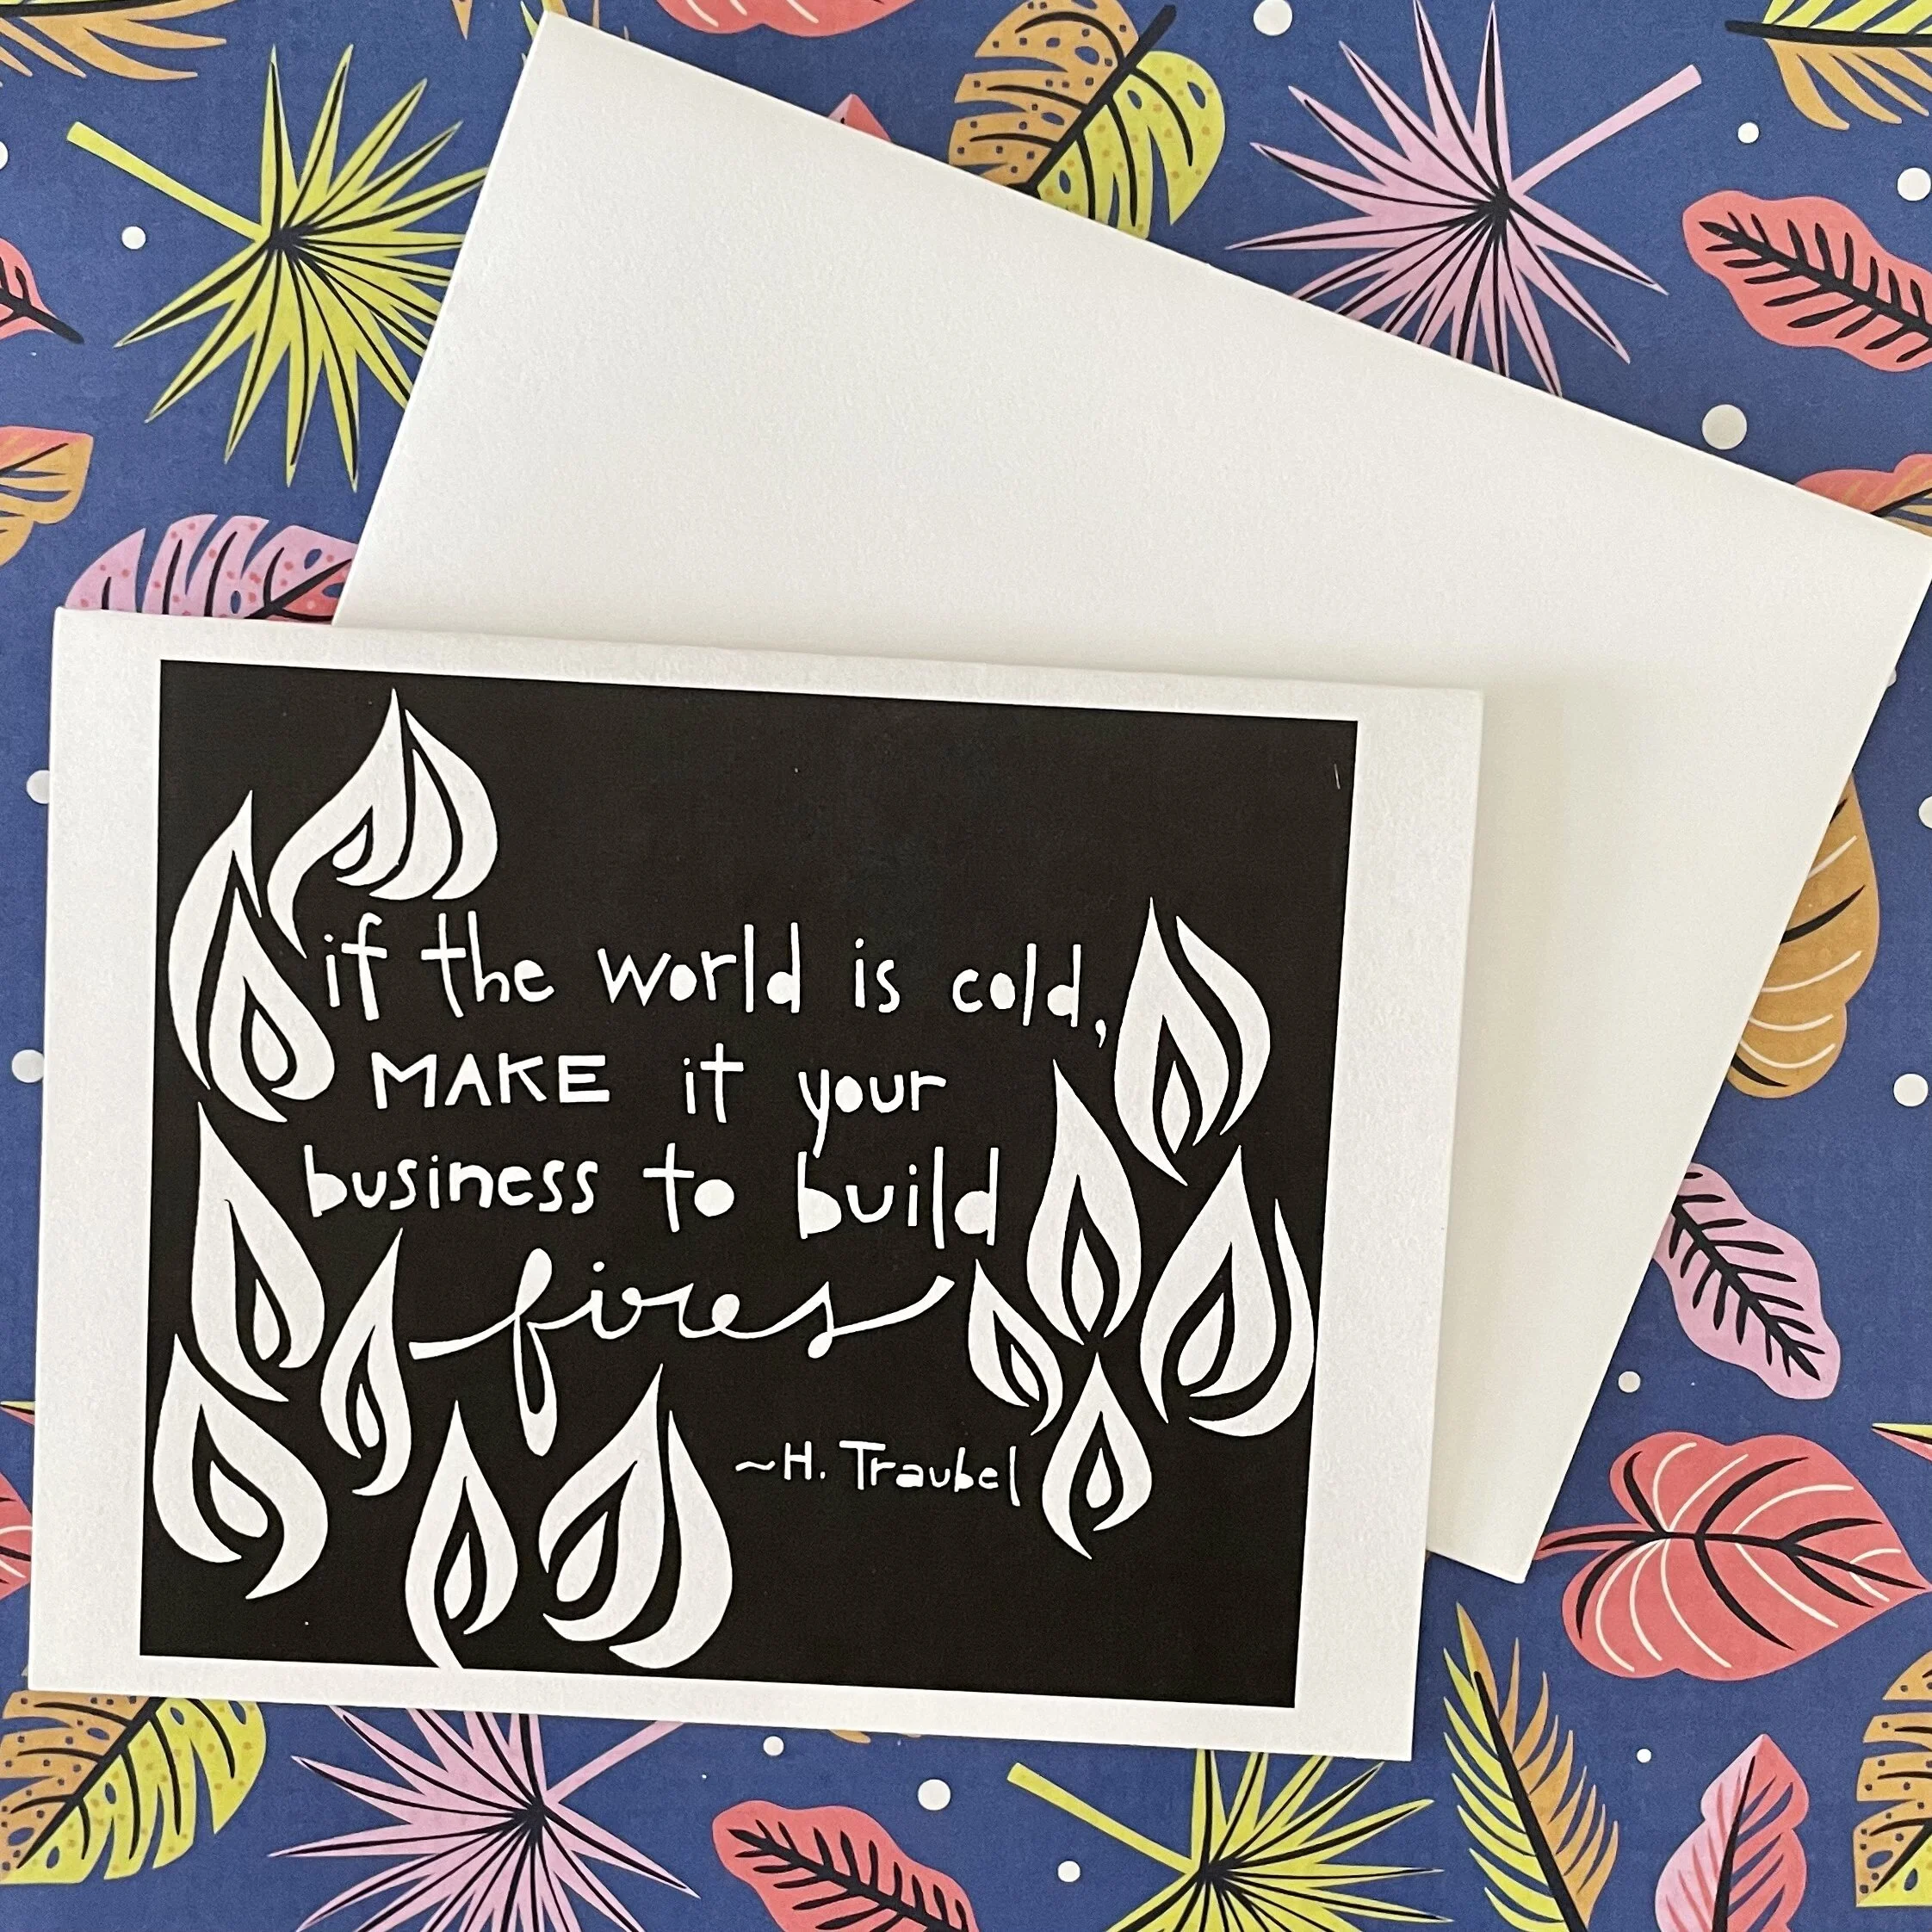 if the world is cold,
MAKE it your
business to build
fires
~H. Traubel